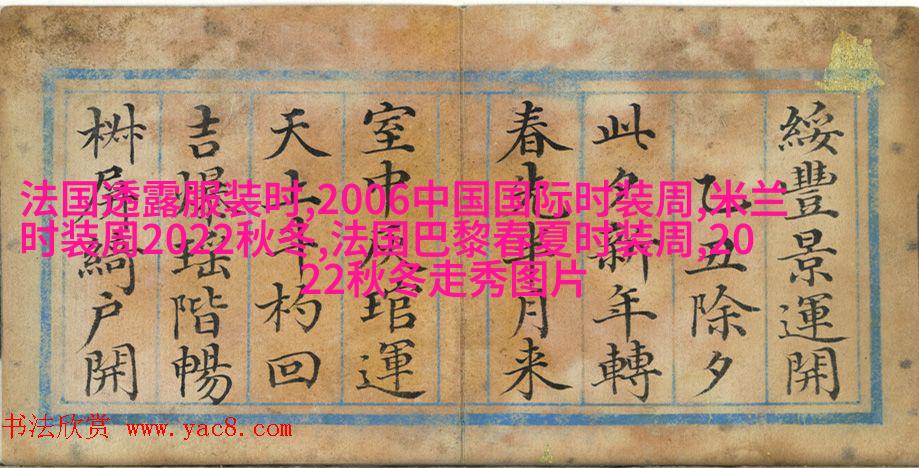 綏豐景運開
乙丑除夕
此夕新年轉
春先半月来
室中風琯運
天上斗杓回
吉爆瑶階暢
屏綺户開
法国透露服装时,2006中国国际时装周,米兰
时装周2022秋冬,法国巴黎春夏时装周,20
22秋冬走秀图片
书法欣赏 www.yac8.com